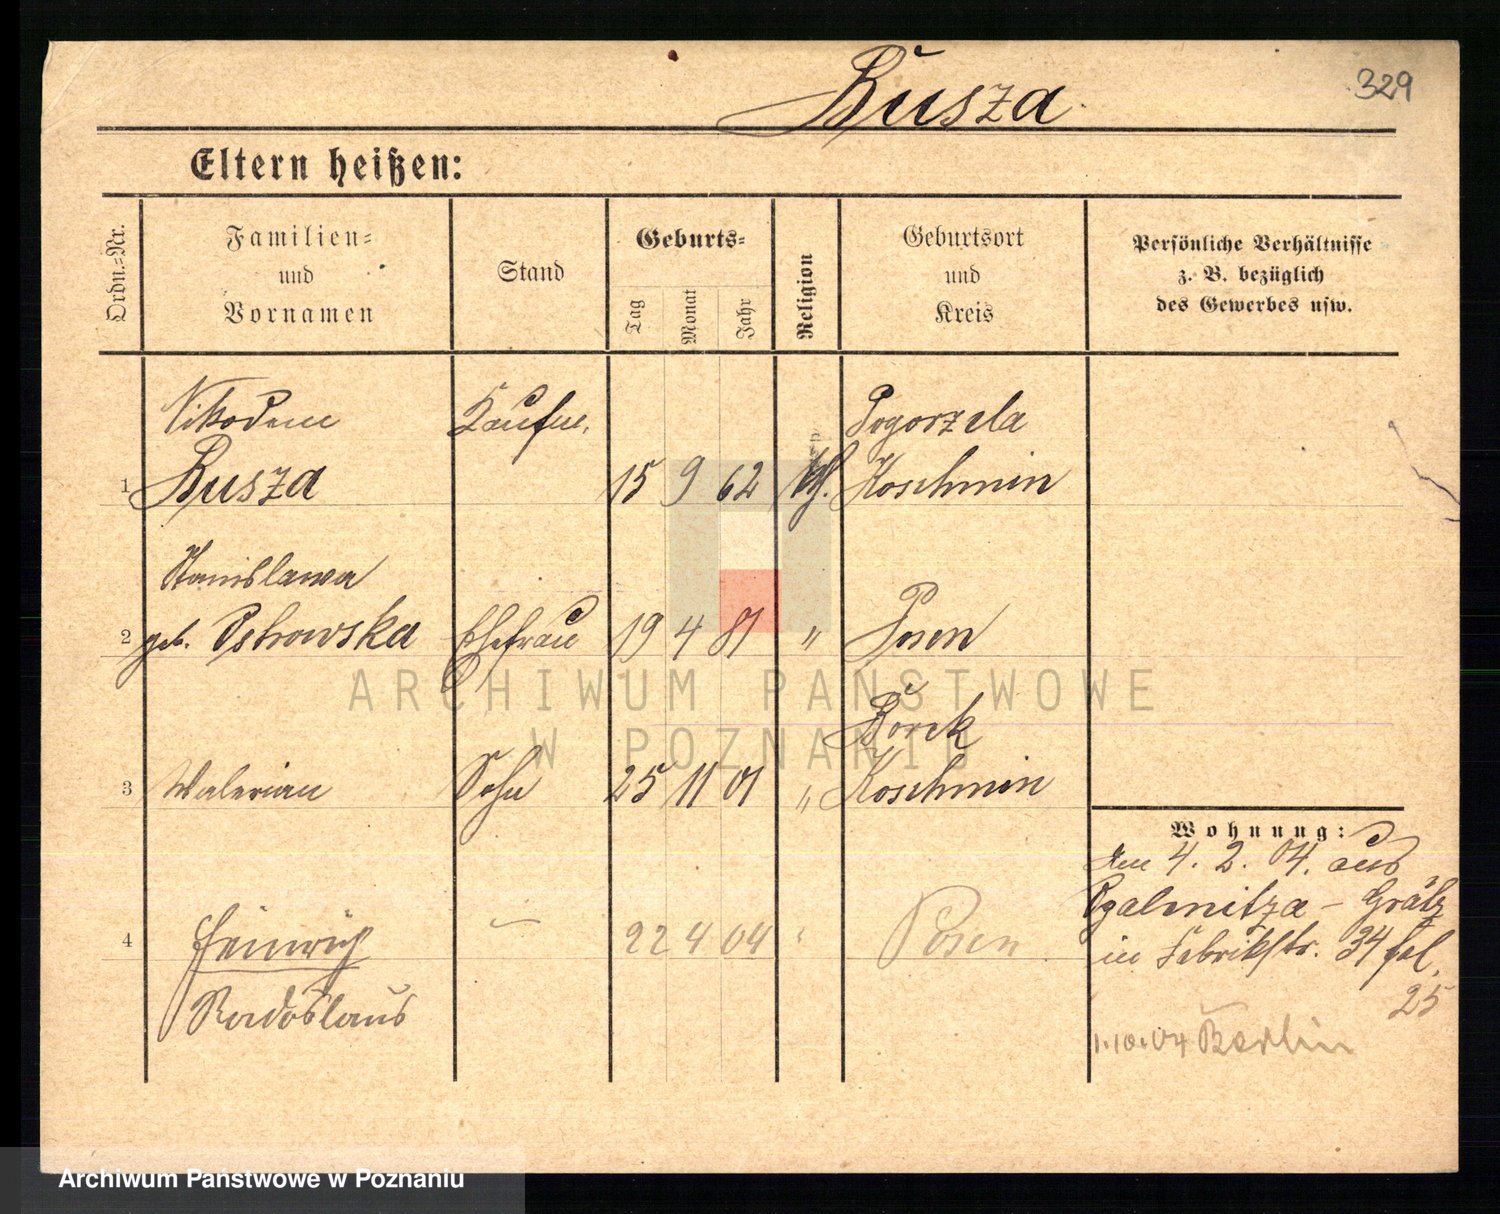 329
Busza
Eltern heißen:
Ordn.=Nr.
Familien=
und
Vornamen
Stand
Geburts=
Tag
Monat
Jahr
Religion
Geburtsort
und
Kreis
Persönliche Verhältnisse
z. B. bezüglich
des Gewerbes usw.
Nikodem Kaufm. Pogorzela
1 Busza 15 9 62 kth. Koschmin
Stanislawa
2 geb. Ostrowska Ehefrau 19 4 81 " Posen
Borek
3 Walerian Sohn 25 11 01 " Koschmin
Wohnung:
Am 4. 2. 04. aus
Grätz
4 Heinrich — 22 4 04 " Posen
in Fabrikstr. 34
Radoslaus
25
1.10.04 Berlin
ARCHIWUM PAŃSTWOWE
W POZNANIU
Archiwum Państwowe w Poznaniu